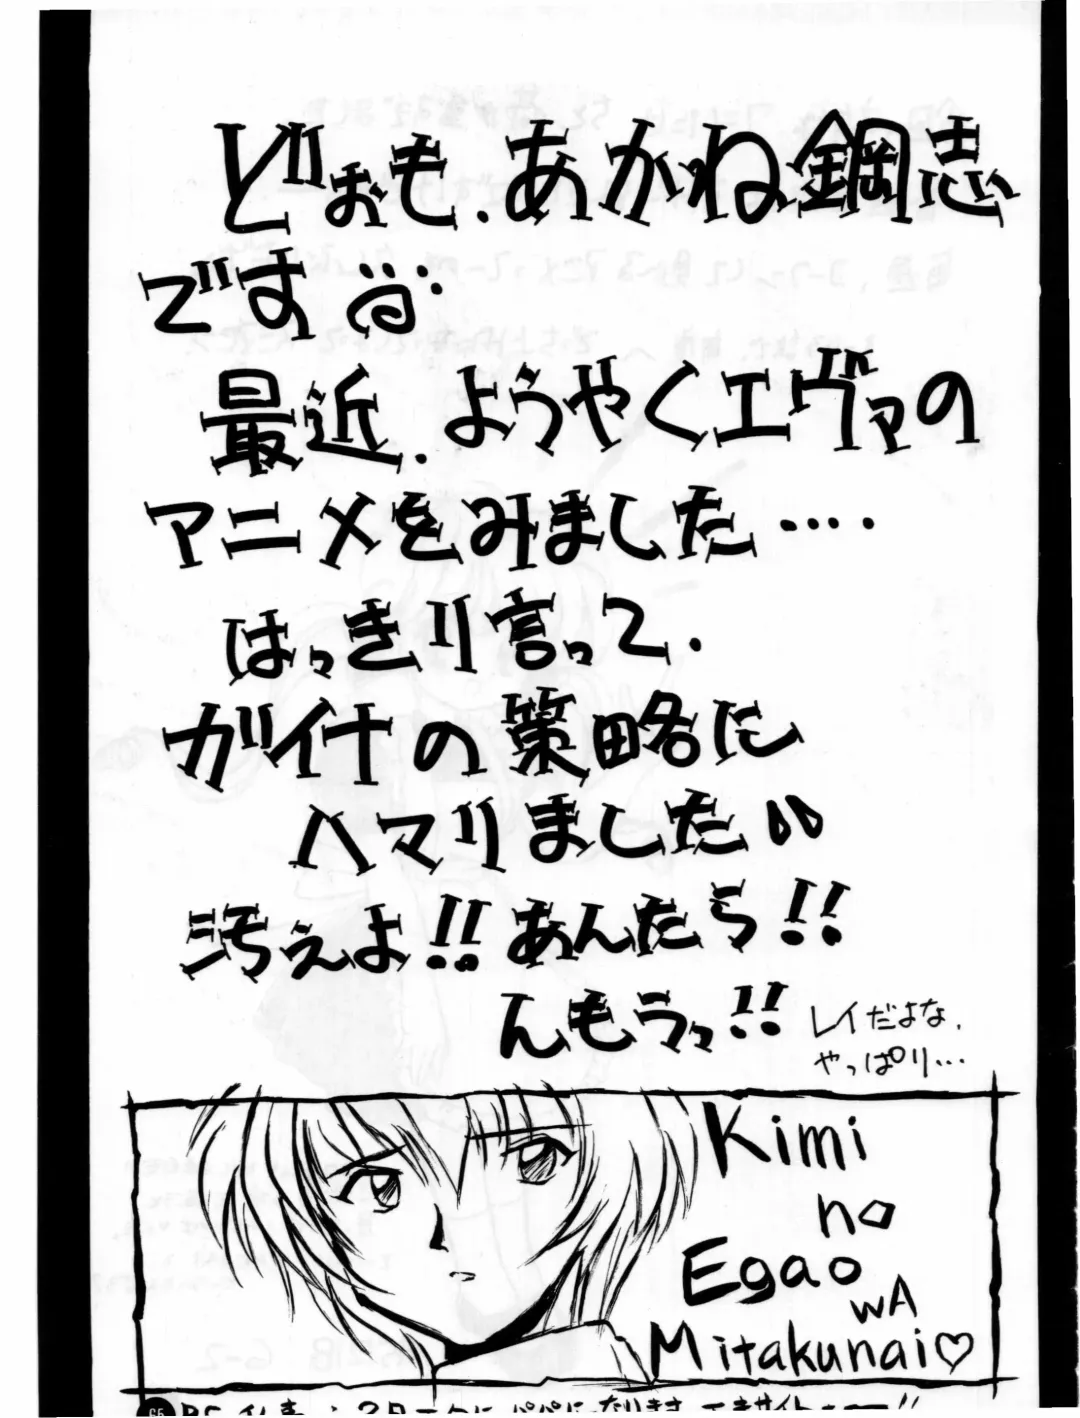 どぉも、あかね鋼志
です
最近、ようやくエヴァの
アニメをみました‥‥
はっきり言って、
ガイナの策略に
ハマりました
汚ぇよ!!あんたら!!
んもうっ!!
レイだよな、
やっぱり…
Kimi
no
Egao
wA
Mitakunai♡